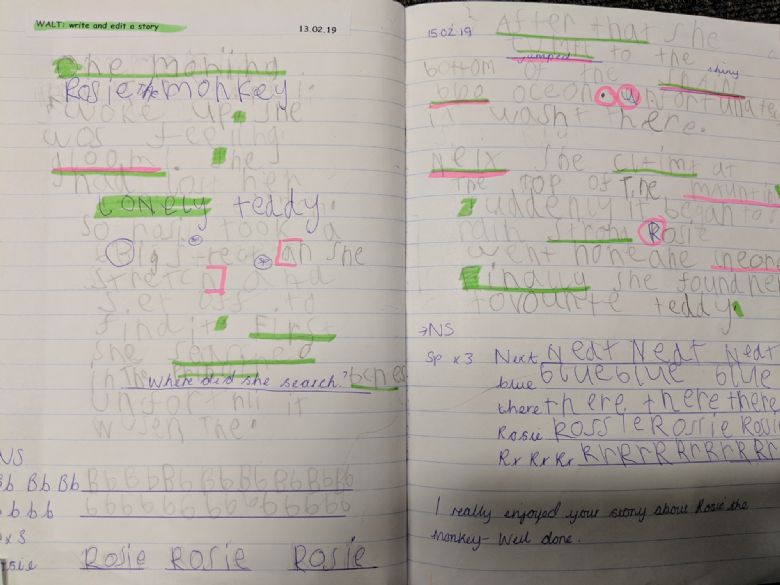 WALT: write and edit a story
13.02.19
One moning
Rosie the monkey
woke up. She
was feeling
gloomy. She
had lost her
lonely teddy.
So rosie took a
Big stretch an she
stretch and
set off to
find it. First
she searched
in the
"Where did she search?"
Unfortnil it
wasen the
NS
Bb Bb Bb Bb Bb Bb Bb Bb Bb Bb
b b b b b b b b b b b b b
x 3
Rosie Rosie Rosie
15.02.19
After that she
jumped to the
bottom of the shiny
bloo ocean. unfortunate
it wasnt here.
Nexx she climt at
the top of the mauntin
Suddenly it began to
rain strong Rosie
went home and
Finally she found her
favourite teddy.
→NS
Sp x 3 Next Nedt Nedt Nedt
blue blue blue blue
there there there there
Rosie Rossie Rossie Rosi
Rr Rr Rr RrRrRr RrRrRrRr
I really enjoyed your story about Rosie the
monkey - Well done.